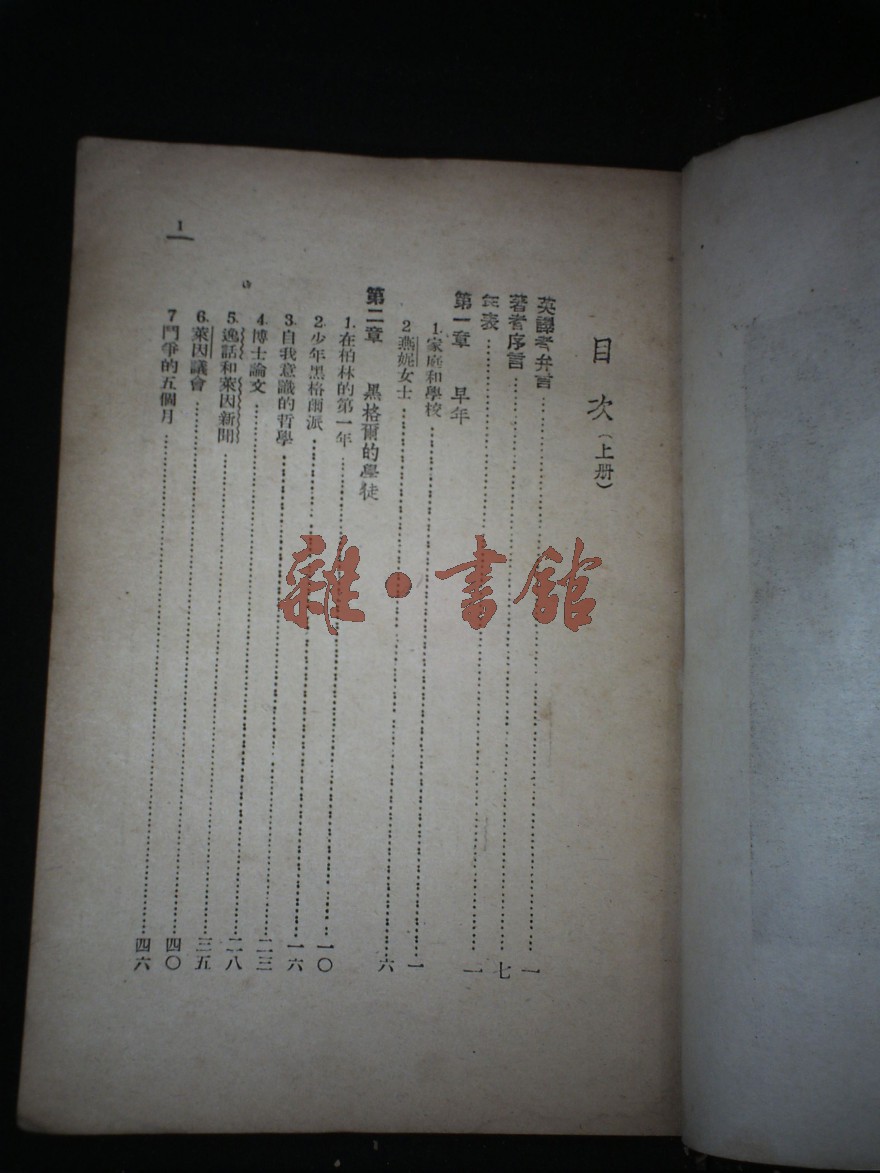 目次（上册）
英譯者弁言 一
著者序言 七
年表 一
第一章 早年
1. 家庭和學校 一
2 燕妮女士 六
第二章 黑格爾的學徒
1. 在柏林的第一年 一〇
2. 少年黑格爾派 一六
3. 自我意識的哲學 二三
4. 博士論文 二八
5. 逸話和萊因新聞 三五
6. 萊因議會 四〇
7 鬥爭的五個月 四六
1
雜·書館